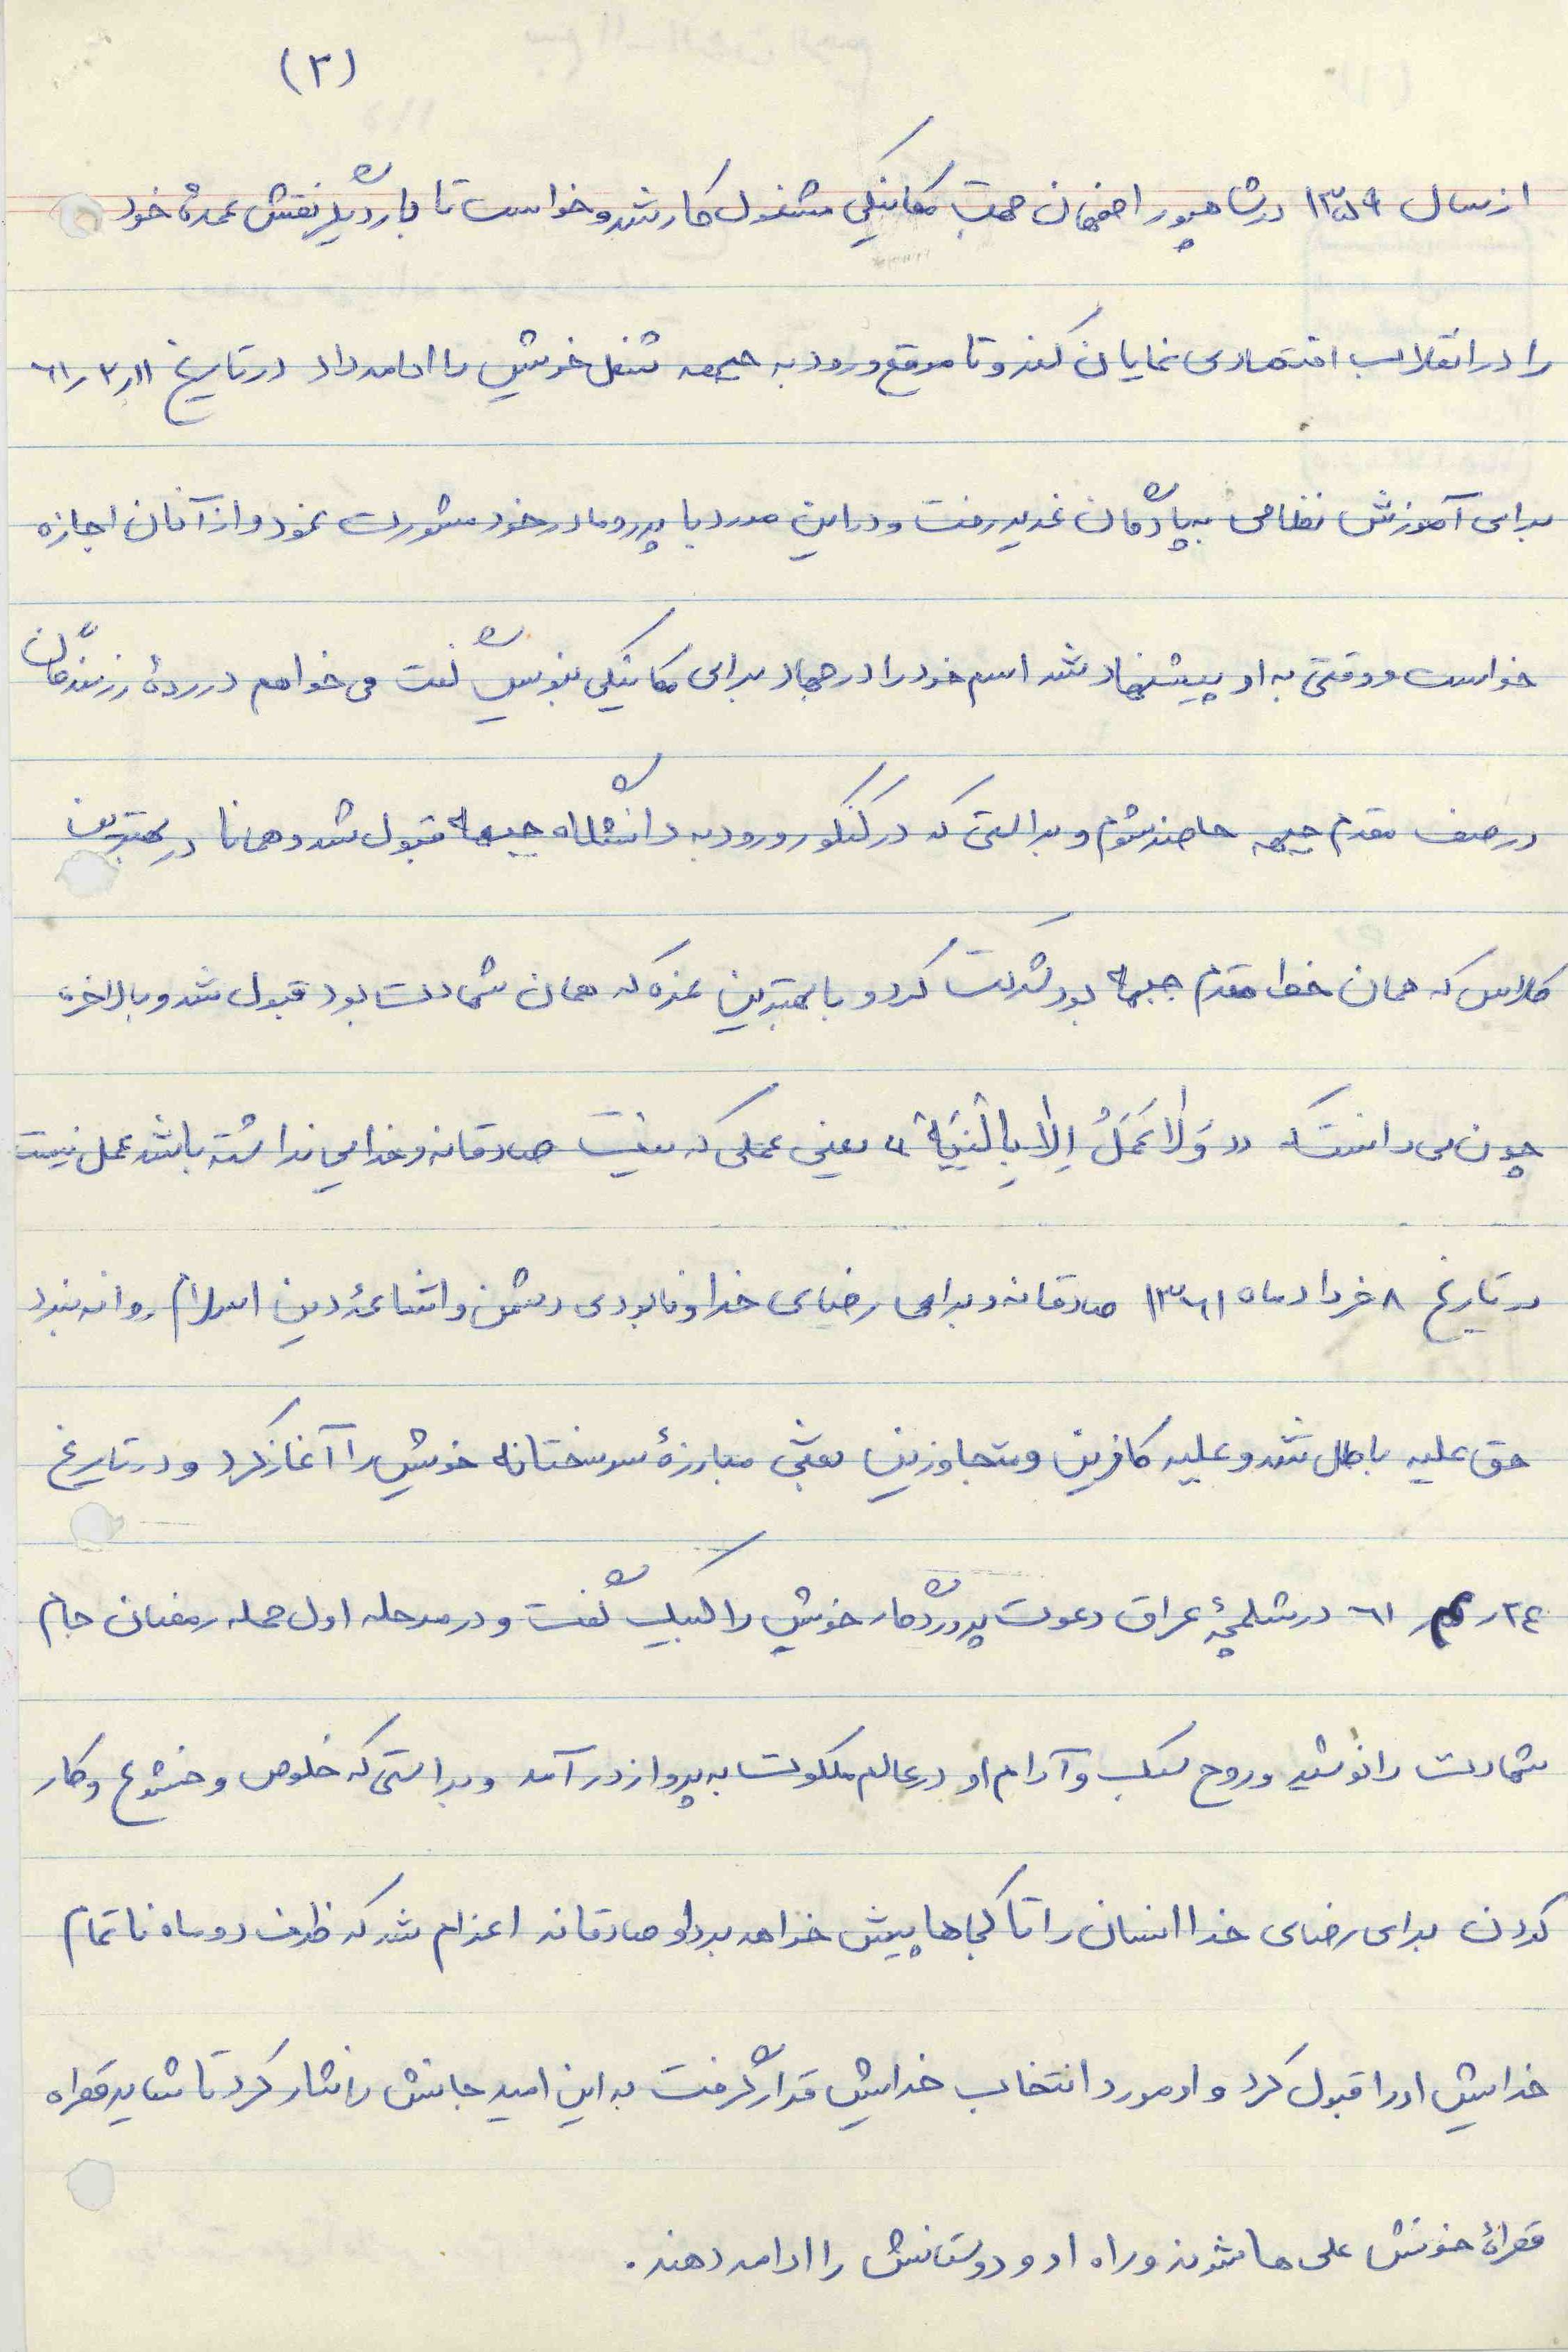 (۳)
از سال ۱۳۵۹ در شاهپور اصفهان جهت مکانیکی مشغول کار شد و خواست تا بار دیگر نقش عمدهٔ خود
را در انقلاب اقتصادی نمایان کند و تا موقع ورود به جبهه شغل خویش را ادامه داد در تاریخ ۶۱٫۲٫۱۱
برای آموزش نظامی به پادگان غدیر رفت و در این مورد با پدر و مادر خود مشورت نمود و از آنان اجازه
خواست و وقتی به او پیشنهاد شد اسم خود را در جهاد برای مکانیکی بنویس گفت می خواهم در ردهٔ رزمندگان
در صف مقدم جبهه حاضر شوم و براستی که در کنکور ورود به دانشگاه جبهه قبول شد و همانا در بهترین
کلاس که همان خط مقدم جبهه بود شرکت کرد و با بهترین نمره که همان شهادت بود قبول شد و بالاخره
چون می دانست که «وَلاٰ عَمَلُ اِلاٰ بِالْنِیَّةْ» یعنی عملی که نیّت صادقانه و خدایی نداشته باشد عمل نیست
در تاریخ ۸ خرداد ماه ۱۳۶۱ صادقانه و برای رضای خدا و نابودی دشمن و اشاعهٔ دین اسلام روانه نبرد
حق علیه باطل شد و علیه کافرین و متجاوزین بعثی مبارزهٔ سرسختانه خویش را آغاز کرد و در تاریخ
۲۴ر۴ر۶۱ در شلمچهٔ عراق دعوت پروردگار خویش را لبیک گفت و در مرحله اول حمله رمضان جام
شهادت را نوشید و روح سبک و آرام او در عالم ملکوت به پرواز در آمد و براستی که خلوص و خشوع و کار
کردن برای رضای خدا انسان را تا کجاها پیش خواهد برد او صادقانه اعزام شد که ظرف دو ماه ناتمام
خدایش او را قبول کرد و او مورد انتخاب خدایش قرار گرفت به این امید جانش را نثار کرد تا شاید قطره
قطرهٔ خونش علی ها شوند و راه او و دوستانش را ادامه دهند.